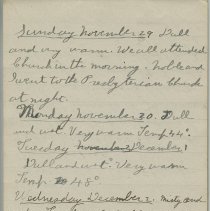 Sunday November 29 Dull
and very warm. We all attended
Church in the morning. Noble and
I went to the Presbyterian Church
at night.
Monday November 30. Dull
and wet. Very warm Temp 54°.
Tuesday November December 1
Dull and wet. Very warm
Temp 48°
Wednesday December 2. misty and